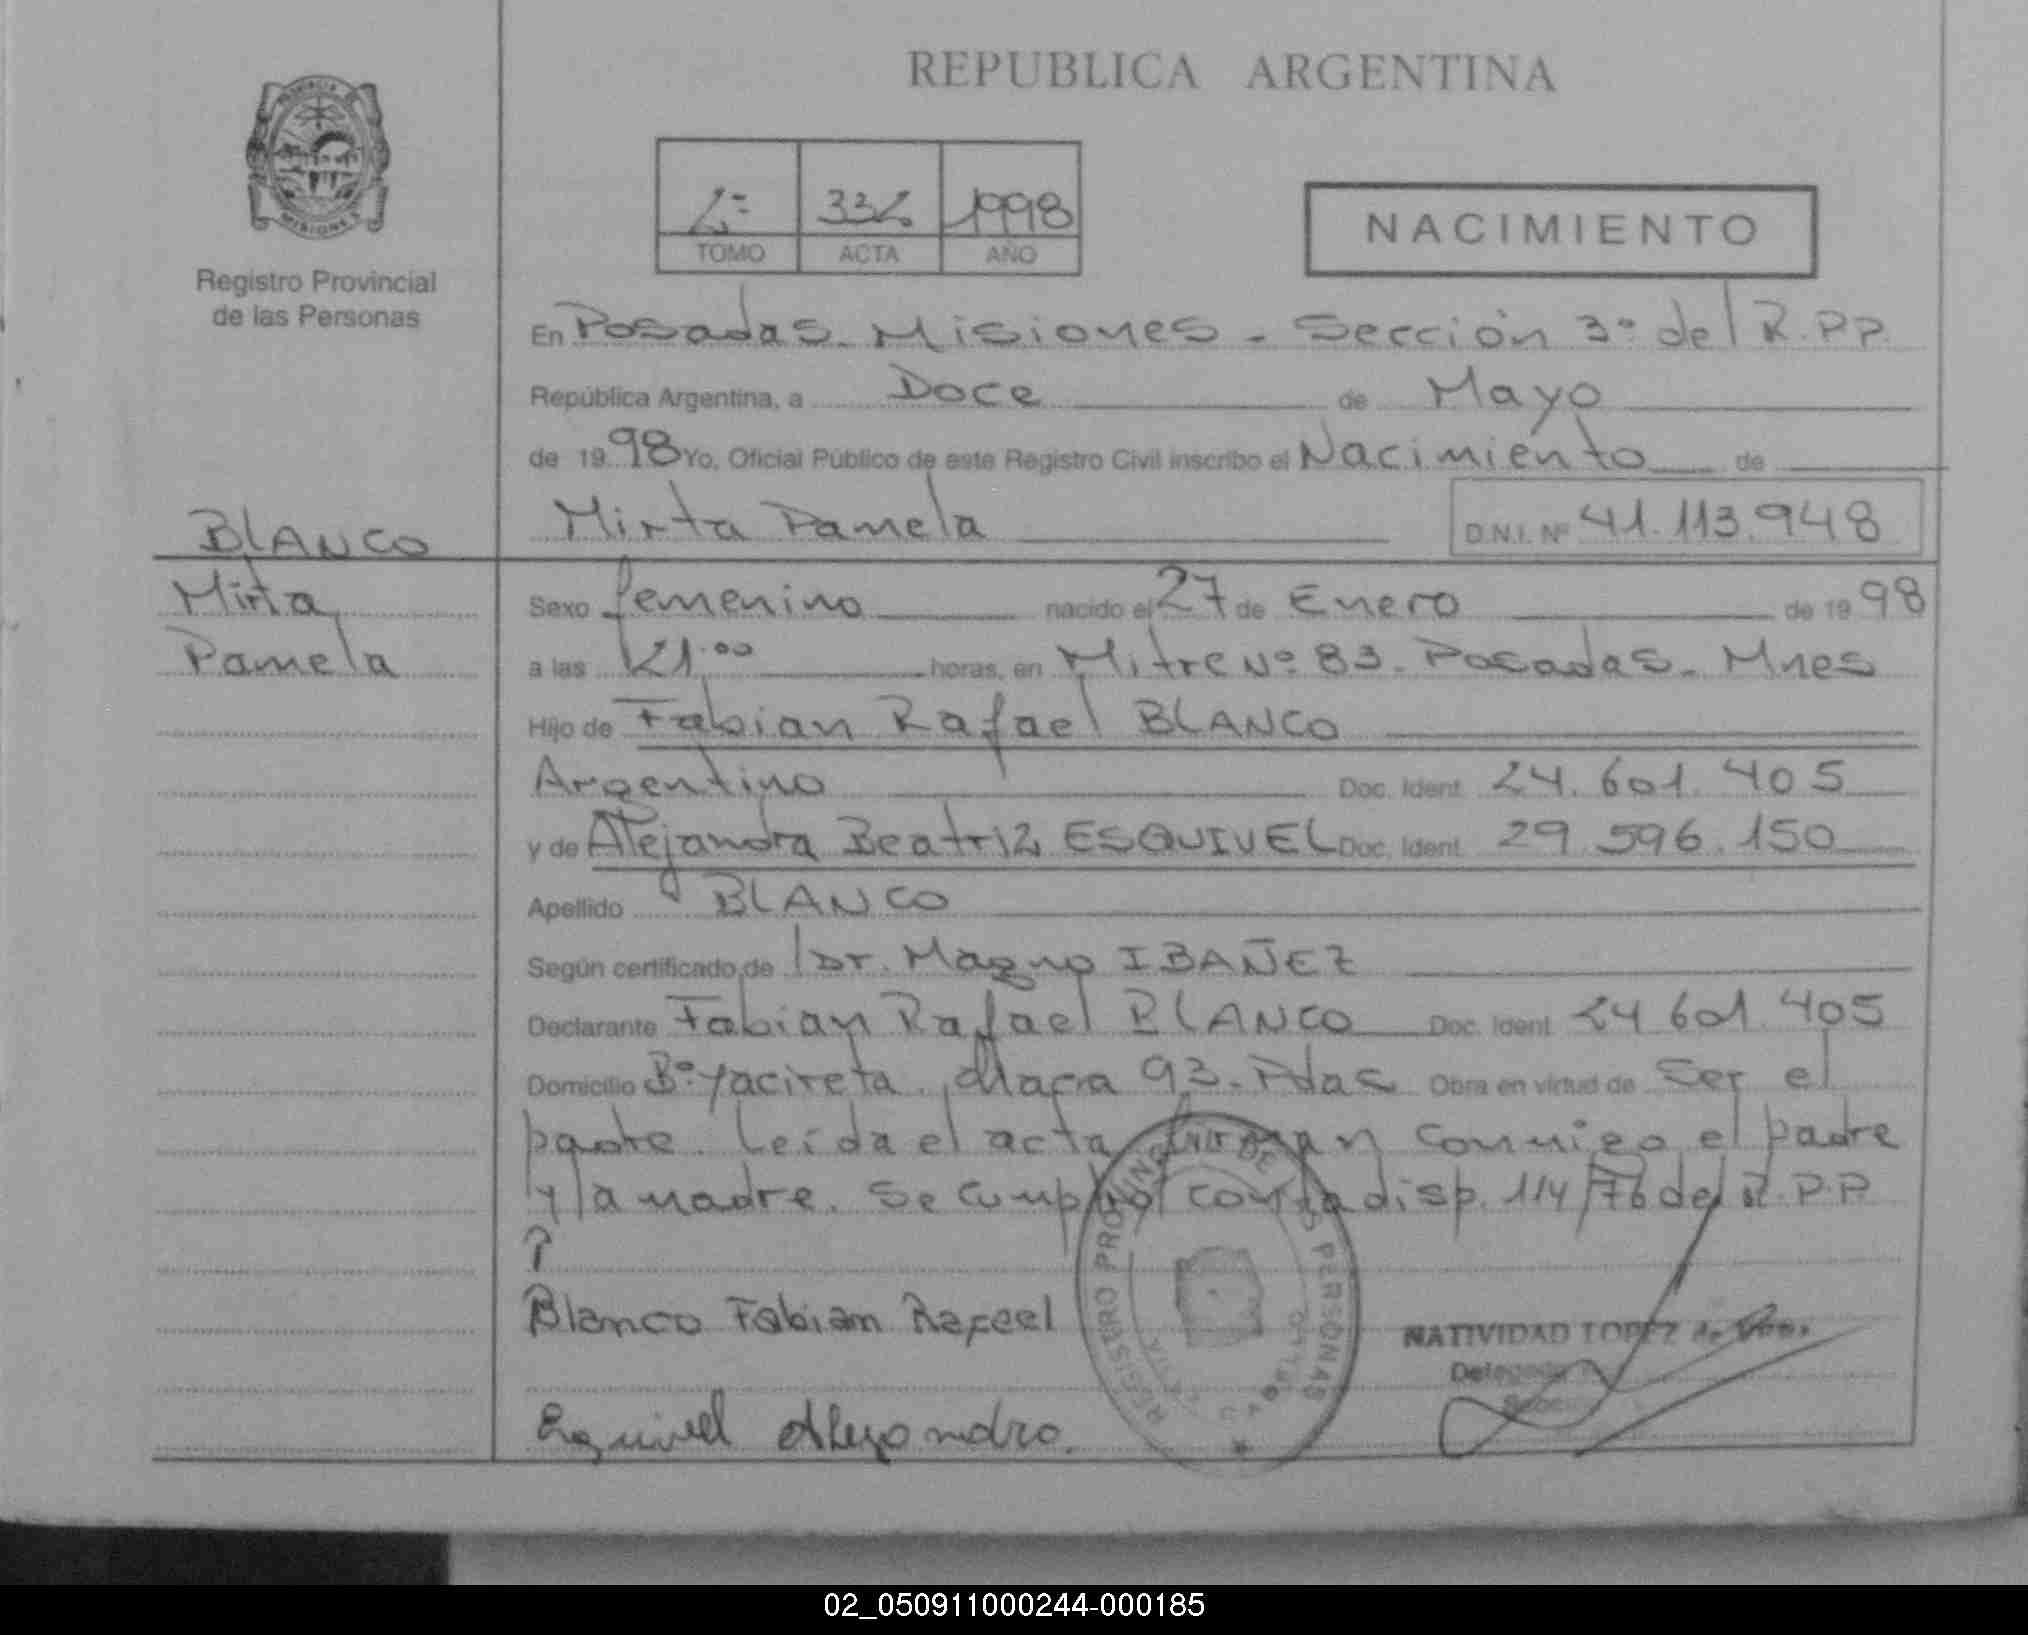 REPUBLICA ARGENTINA
PROVINCIA DE MISIONES
Registro Provincial
de las Personas
2º 332 1998
TOMO ACTA AÑO
NACIMIENTO
En Posadas - Misiones - Sección 3º del R.P.P.
República Argentina, a Doce de Mayo
de 1998 Yo, Oficial Público de este Registro Civil inscribo el Nacimiento de
Mirta Pamela D.N.I. Nº 41.113.948
BLANCO
Mirta
Pamela
Sexo femenino nacido el 27 de Enero de 1998
a las 21.00 horas, en Mitre Nº 83 - Posadas - Mnes
Hijo de Fabian Rafael BLANCO
Argentino Doc. Ident. 24.601.405
y de Alejandra Beatriz ESQUIVEL Doc. Ident. 29.596.150
Apellido BLANCO
Según certificado de Dr. Magno IBAÑEZ
Declarante Fabian Rafael BLANCO Doc. Ident. 24.601.405
Domicilio Bº Yacireta. 93 - Pdas Obra en virtud de Ser el
padre. Leída el acta firman conmigo el padre
y la madre. Se cumplió con la disp. 114/76 del R.P.P.
Blanco Fabian Rafael
Esquivel Alejandra.
REGISTRO PROVINCIAL DE LAS PERSONAS
NATIVIDAD LOPEZ de
Delegada
02_050911000244-000185